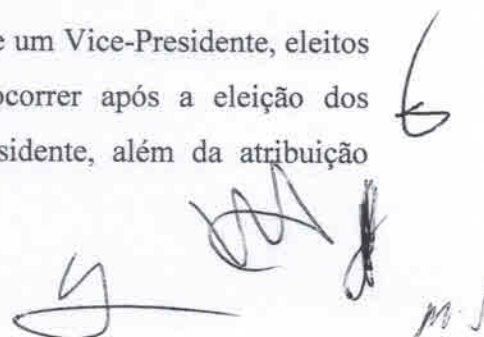 e um Vice-Presidente, eleitos
ocorrer após a eleição dos
sidente, além da atribuição